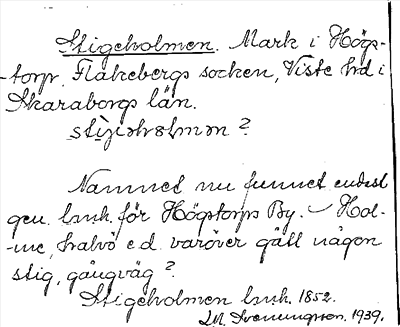 Stigeholmen. Mark i Högs-
-torp. Flakebergs socken, Viste hd i
Skaraborgs län.
stìjɘhɘlmɘn?
Namnet nu funnet endast
gen. lmk. för Högstorps By. – Hol-
-me, halvö e.d. varöver gått någon
stig, gångväg?
Stigeholmen lmk. 1852.
M. Svenungsson. 1939.